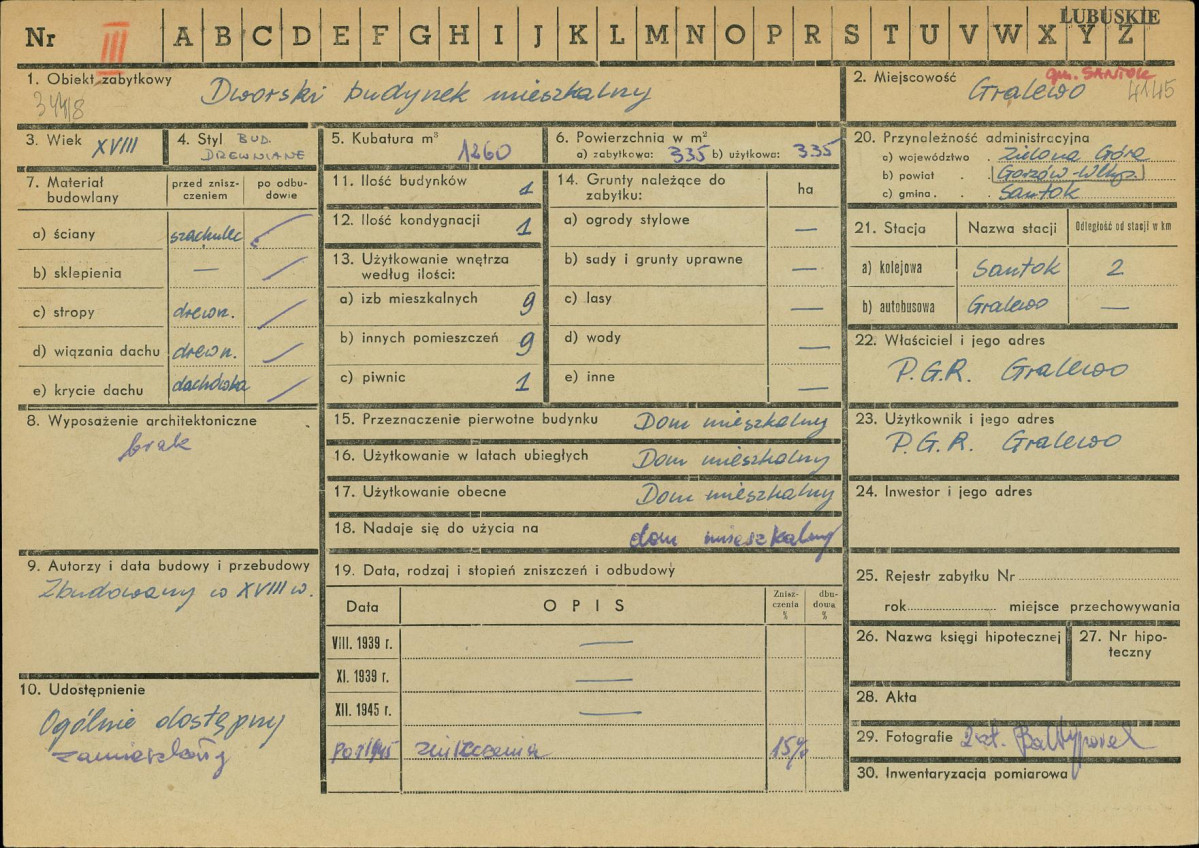 LUBUSKIE
Nr III A B C D E F G H I J K L M N O P R S T U V W X Y Z
1. Obiekt zabytkowy Dworski budynek mieszkalny
344/8
2. Miejscowość gm. SANTOK
Gralewo 4145
3. Wiek XVIII
4. Styl BUD.
DREWNIANE
5. Kubatura m³ 1260
6. Powierzchnia w m²
a) zabytkowa: 335 b) użytkowa: 335
7. Materiał budowlany
przed zniszczeniem
po odbudowie
a) ściany szachulec
b) sklepienia —
c) stropy drewn.
d) wiązania dachu drewn.
e) krycie dachu dachówka
8. Wyposażenie architektoniczne
brak
9. Autorzy i data budowy i przebudowy
Zbudowany w XVIII w.
10. Udostępnienie
Ogólnie dostępny
zamieszkały
11. Ilość budynków 1
12. Ilość kondygnacji 1
13. Użytkowanie wnętrza
według ilości:
a) izb mieszkalnych 9
b) innych pomieszczeń 9
c) piwnic 1
14. Grunty należące do
zabytku: ha
a) ogrody stylowe —
b) sady i grunty uprawne —
c) lasy —
d) wody —
e) inne —
15. Przeznaczenie pierwotne budynku Dom mieszkalny
16. Użytkowanie w latach ubiegłych Dom mieszkalny
17. Użytkowanie obecne Dom mieszkalny
18. Nadaje się do użycia na dom mieszkalny
19. Data, rodzaj i stopień zniszczeń i odbudowy
Data OPIS Zniszczenia % dbudowa %
VIII. 1939 r. —
XI. 1939 r. —
XII. 1945 r. —
po 1945 zniszczenia 15%
20. Przynależność administracyjna
a) województwo . Zielona Góra
b) powiat . (Gorzów-Wlkp.)
c) gmina . . Santok
21. Stacja Nazwa stacji Odległość od stacji w km
a) kolejowa Santok 2
b) autobusowa Gralewo —
22. Właściciel i jego adres
P.G.R. Gralewo
23. Użytkownik i jego adres
P.G.R. Gralewo
24. Inwestor i jego adres
25. Rejestr zabytku Nr
rok miejsce przechowywania
26. Nazwa księgi hipotecznej
27. Nr hipoteczny
28. Akta
29. Fotografie
30. Inwentaryzacja pomiarowa